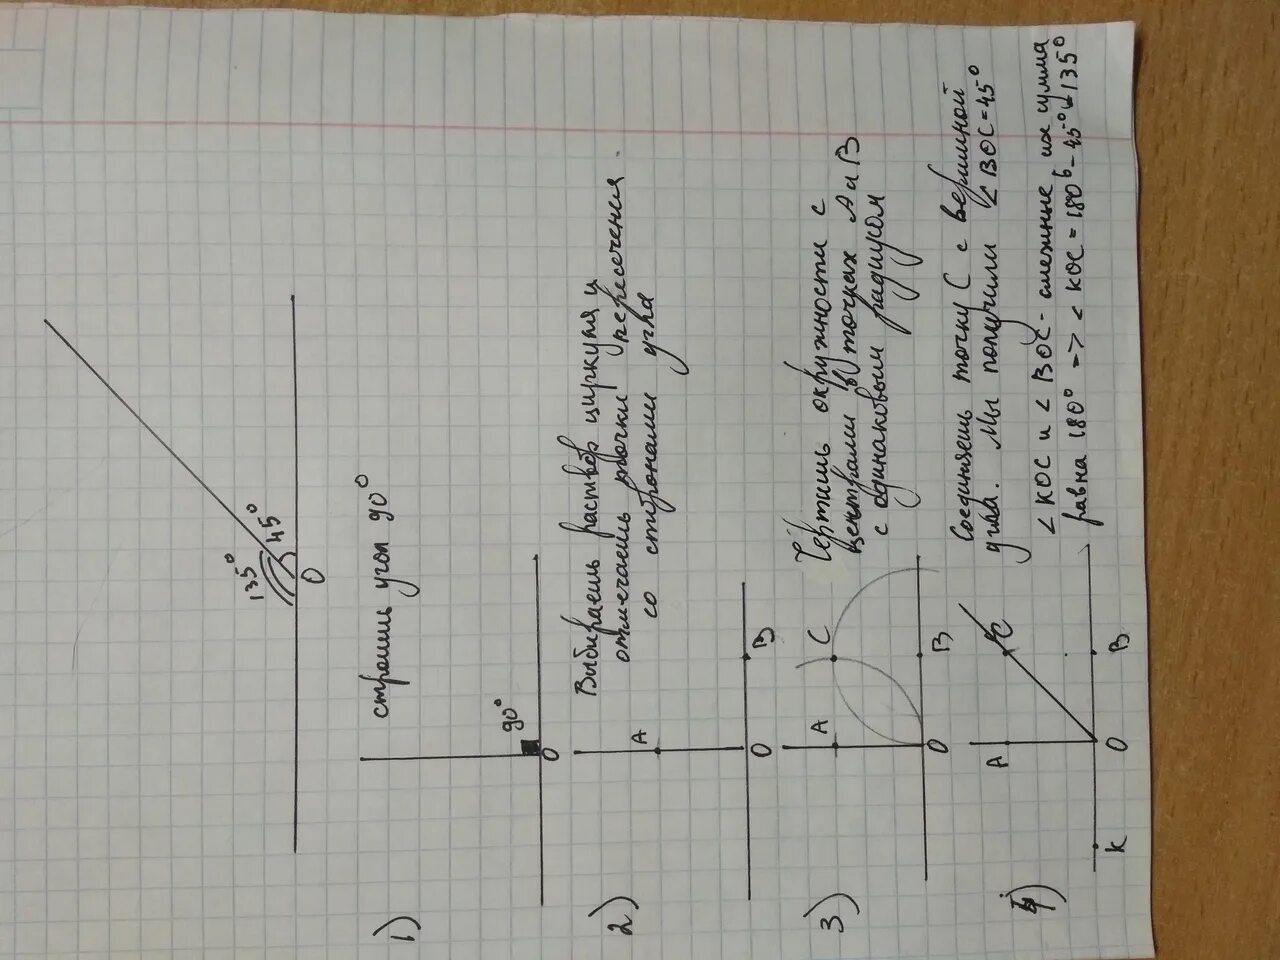 135° 45°
O
1) строишь угол 90°
90°
O
2) Выбираешь раствор циркуля и
отмечаешь точки пересечения
со сторонами угла
A
O B
3) Чертишь окружности с
центрами в точках A и B
с одинаковым радиусом
A C
O B
4) Соединяешь точку C с вершиной
угла. Мы получили ∠BOC=45°
A C
K O B
∠KOC и ∠BOC - смежные, их сумма
равна 180° => ∠KOC = 180°-45°=135°